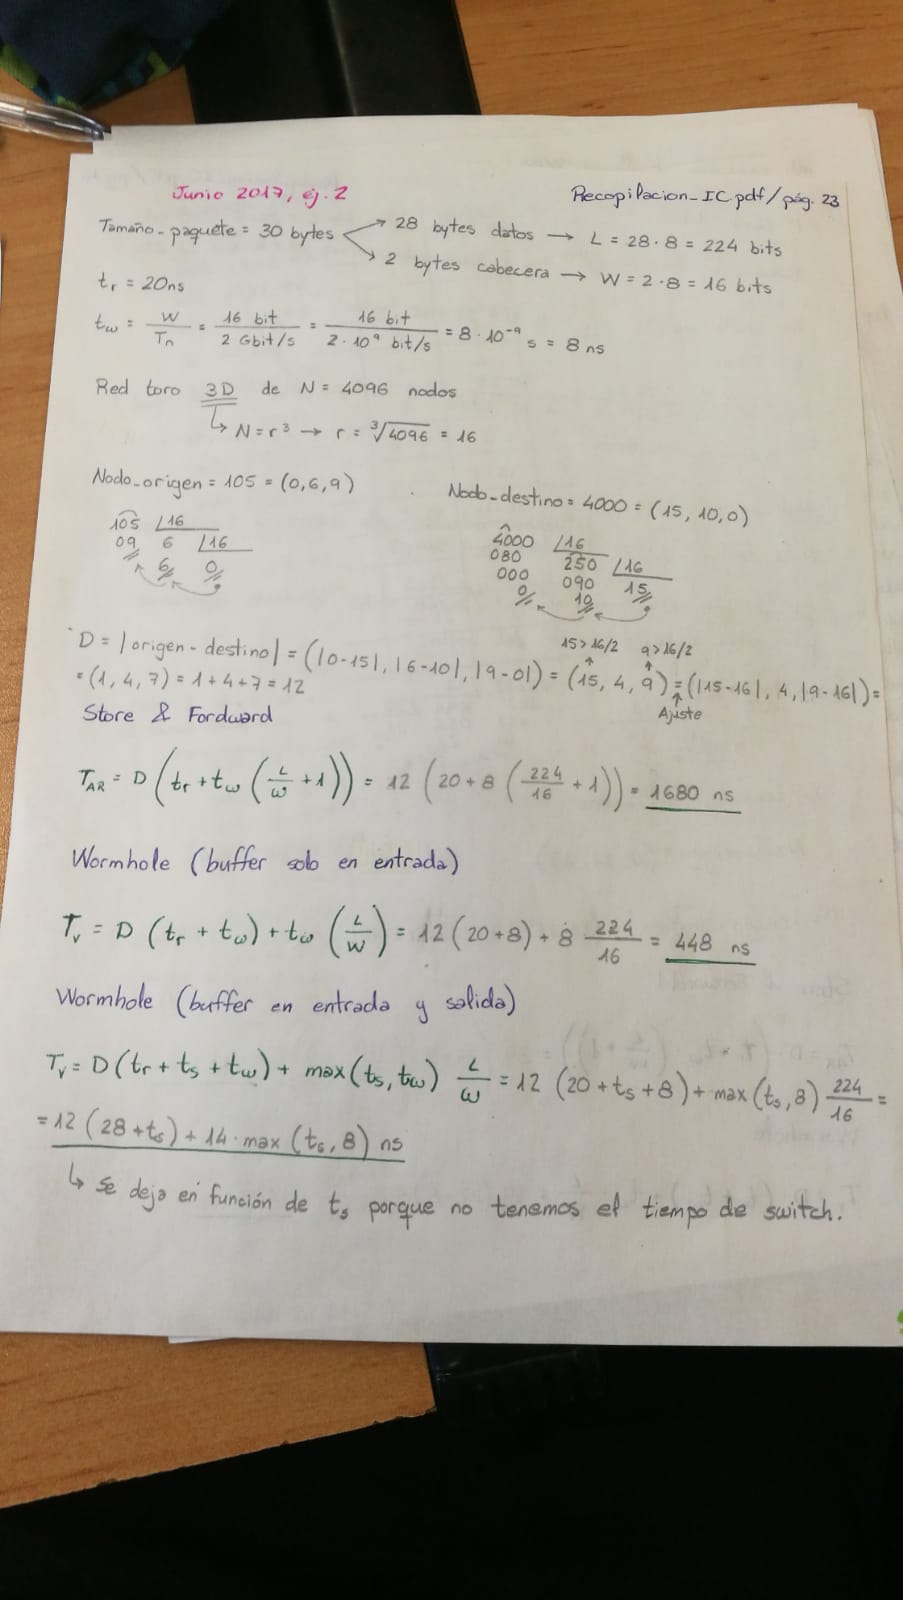 Junio 2017, ej. 2
Recopilacion_IC.pdf/pág. 23
Tamaño_paquete = 30 bytes
28 bytes datos → L = 28·8 = 224 bits
2 bytes cabecera → W = 2·8 = 16 bits
tr = 20ns
tω = W/Tn = 16 bit/2 Gbit/s = 16 bit/2·10⁹ bit/s = 8·10⁻⁹ s = 8 ns
Red toro 3D de N = 4096 nodos
↳ N = r³ → r = ∛4096 = 16
Nodo_origen = 105 = (0,6,9)
Nodo_destino = 4000 = (15, 10, 0)
105 |16
09 6 |16
6 0
4000 |16
080 250 |16
000 090 15
0 10
15 > 16/2 9 > 16/2
D = |origen - destino| = (|0-15|, |6-10|, |9-0|) = (15, 4, 9) = (|15-16|, 4, |9-16|) =
Ajuste
= (1, 4, 7) = 1+4+7 = 12
Store & Fordward
TAR = D (tr + tω (L/ω + 1)) = 12 (20 + 8 (224/16 + 1)) = 1680 ns
Wormhole (buffer solo en entrada)
Tv = D (tr + tω) + tω (L/W) = 12 (20+8) + 8 224/16 = 448 ns
Wormhole (buffer en entrada y salida)
Tv = D (tr + ts + tω) + max(ts, tω) L/ω = 12 (20 + ts + 8) + max(ts, 8) 224/16 =
= 12 (28 + ts) + 14 · max (ts, 8) ns
↳ Se deja en función de ts porque no tenemos el tiempo de switch.